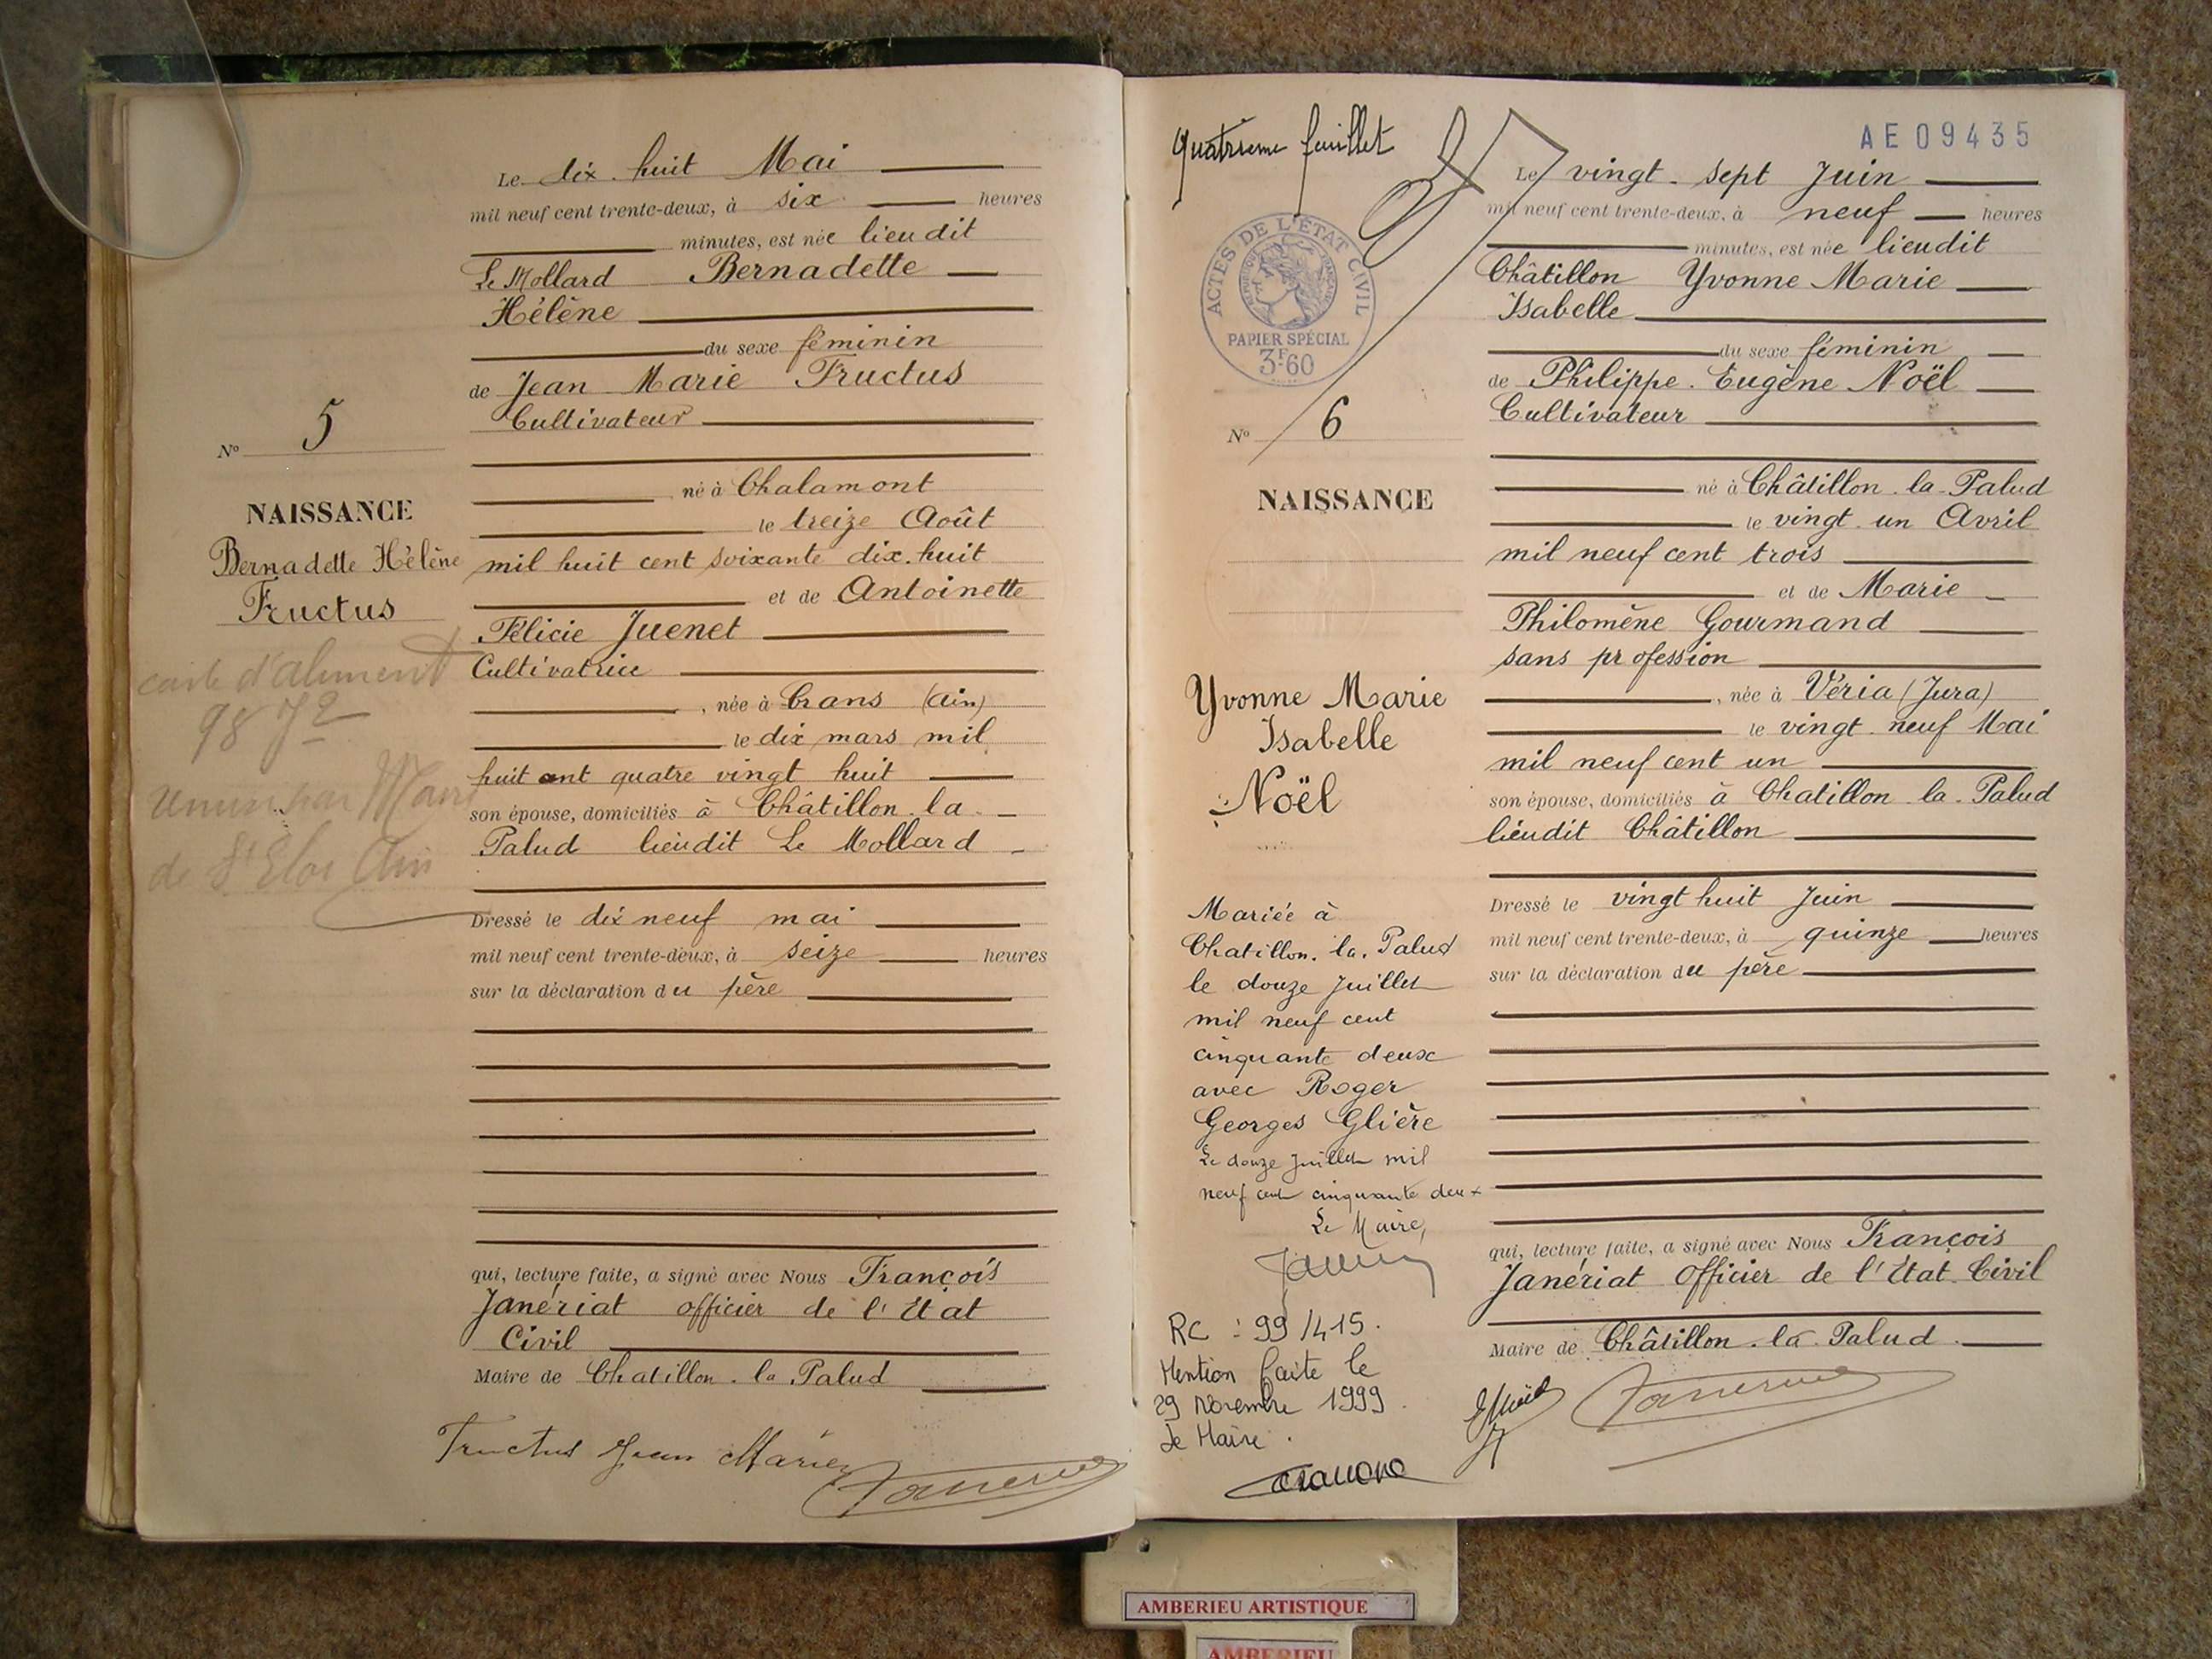 Le dix-huit Mai
mil neuf cent trente-deux, à six heures
minutes, est née lieudit
Le Mollard Bernadette
Hélène
du sexe féminin
de Jean Marie Fructus
Cultivateur
né à Chalamont
le treize Août
mil huit cent soixante dix-huit
et de Antoinette
Félicie Juenet
Cultivatrice
, née à Crans (Ain)
le dix mars mil
huit cent quatre vingt huit
son épouse, domiciliés à Châtillon-la-
Palud lieudit Le Mollard
Dressé le dix neuf mai
mil neuf cent trente-deux, à seize heures
sur la déclaration du père
qui, lecture faite, a signé avec Nous François
Janériat officier de l'État
Civil
Maire de Chatillon-la Palud
Fructus Jean Marie
No 5
NAISSANCE
Bernadette Hélène
Fructus
carte d'aliment
9872
par
de St Eloi Ain
quatrième feuillet
AE09435
ACTES DE L'ÉTAT CIVIL
PAPIER SPÉCIAL
3F60
No 6
NAISSANCE
Yvonne Marie
Isabelle
Noël
Mariée à
Chatillon-la-Palud
le douze Juillet
mil neuf cent
cinquante deux
avec Roger
Georges Glière
Le douze Juillet mil
neuf cent cinquante deux
Le Maire,
RC : 99/415.
Mention faite le
29 Novembre 1999.
Le Maire.
Le vingt-sept Juin
mil neuf cent trente-deux, à neuf heures
minutes, est née lieudit
Châtillon Yvonne Marie
Isabelle
du sexe féminin
de Philippe-Eugène Noël
Cultivateur
né à Châtillon-la-Palud
le vingt-un Avril
mil neuf cent trois
et de Marie
Philomène Gourmand
sans profession
, née à Véria (Jura)
le vingt-neuf Mai
mil neuf cent un
son épouse, domiciliés à Chatillon-la-Palud
lieudit Châtillon
Dressé le vingt huit Juin
mil neuf cent trente-deux, à quinze heures
sur la déclaration du père
qui, lecture faite, a signé avec Nous François
Janériat officier de l'État-Civil
Maire de Châtillon-la-Palud
AMBERIEU ARTISTIQUE
AMBERIEU